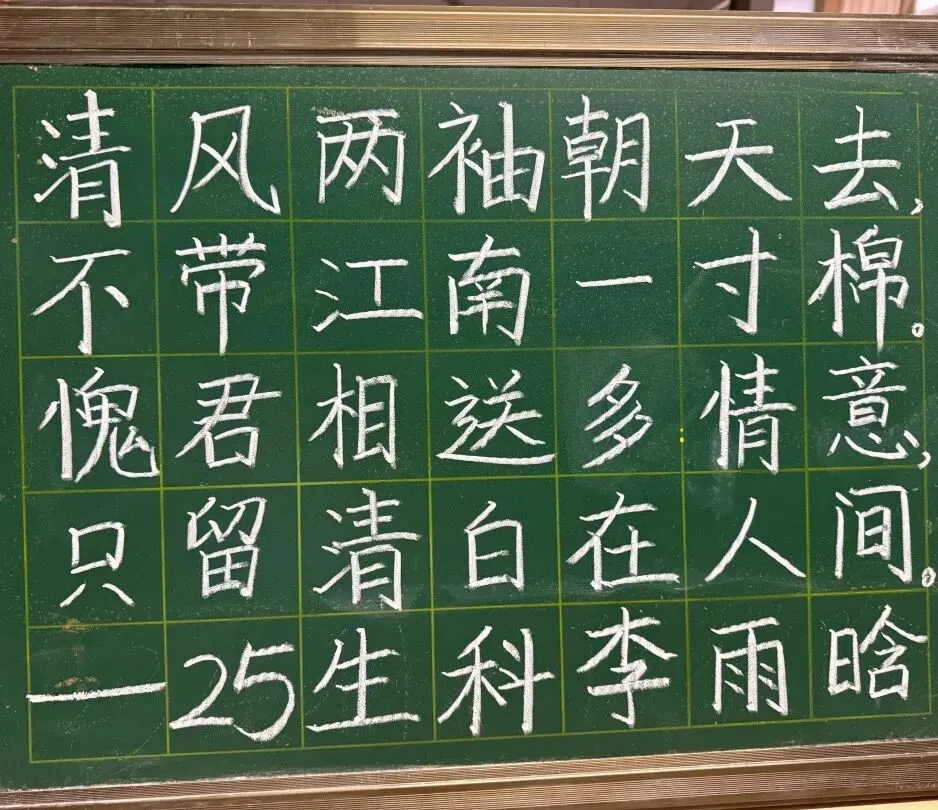 清风两袖朝天去，
不带江南一寸棉。
愧君相送多情意，
只留清白在人间。
—25生科李雨晗